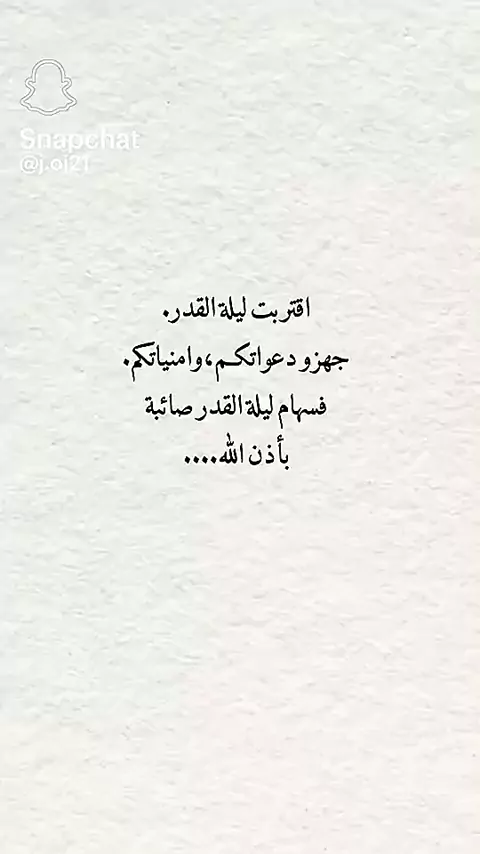 Snapchat
@j.oj21
اقتربت ليلة القدر.
جهزو دعواتكم،وامنياتكم.
فسهام ليلة القدر صائبة
بأذن الله....